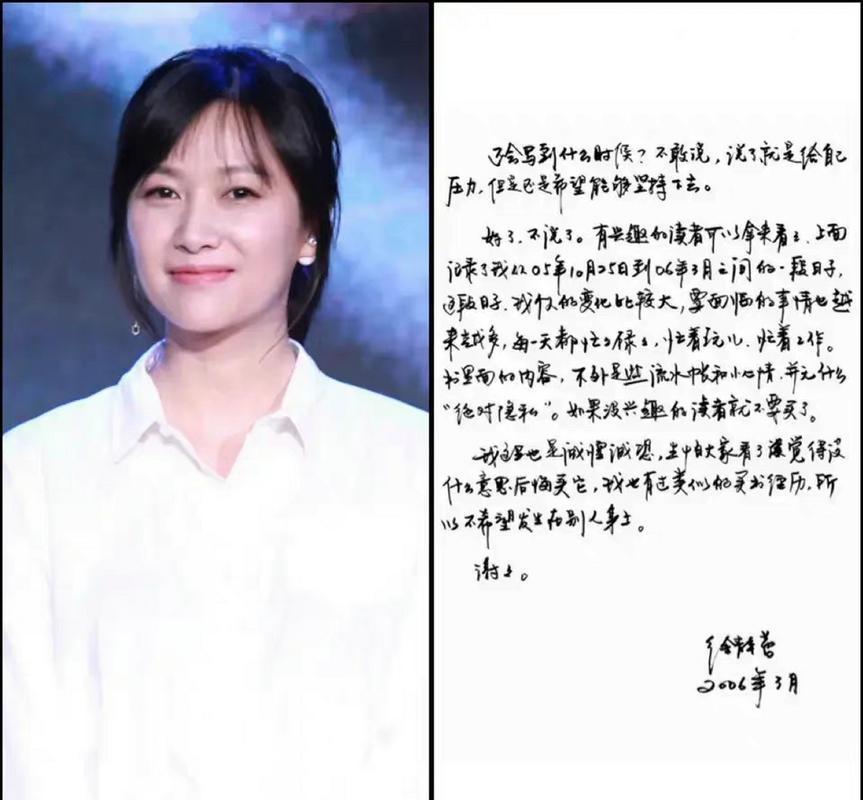 还会写到什么时候？不敢说，说了就是给自己
压力，但是还是希望能够坚持下去。
好了，不说了。有兴趣的读者可以拿来看看，上面
记录了我从05年10月25日到06年3月之间的一段日子，
这段日子，我似的变化比较大，要面临的事情也越
来越多，每一天都忙忙碌碌，忙着玩儿、忙着工作。
书里面的内容，不外是些流水帐和小心情，并无什么
“绝对隐私”。如果没兴趣的读者就不要买了。
我这里也是诚惶诚恐，生怕大家看了后觉得没
什么意思后悔买它，我也有过类似的买书经历，所
以不希望发生在别人身上。
谢谢。
徐静蕾
2006年3月